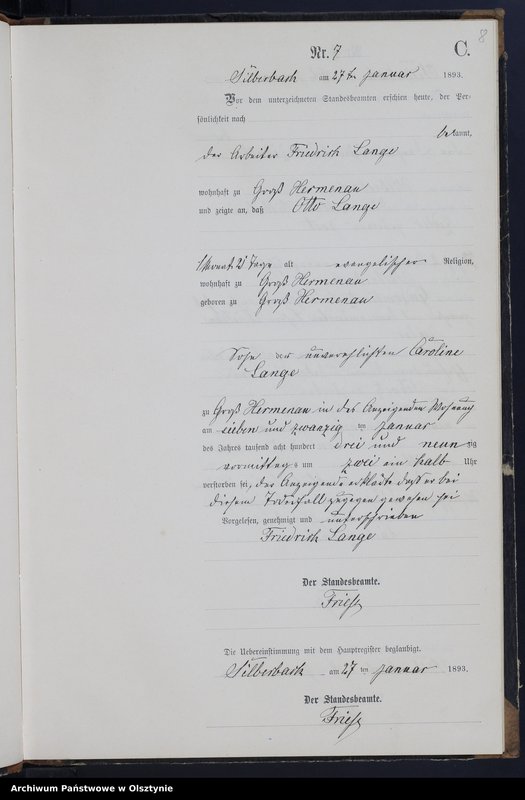 8
Nr. 7
C.
Silberbach am 27 ten Januar 1893.
Vor dem unterzeichneten Standesbeamten erschien heute, der Per-
sönlichkeit nach
bekannt,
der Arbeiter Friedrich Lange
wohnhaft zu Groß Hermenau
und zeigte an, daß Otto Lange
1 Monat Tage alt evangelischer Religion,
wohnhaft zu Groß Hermenau
geboren zu Groß Hermenau
Sohn der unverehlichten Caroline
Lange
zu Groß Hermenau in des Anzeigenden Wohnung
am sieben und zwanzig ten Januar
des Jahres tausend acht hundert drei und neunzig
vormittags um zwei ein halb Uhr
verstorben sei, der Anzeigende erklärte daß er bei
diesem Todesfall zugegen gewesen sei
Vorgelesen, genehmigt und unterschrieben
Friedrich Lange
Der Standesbeamte.
Friese
Die Uebereinstimmung mit dem Hauptregister beglaubigt.
Silberbach am 27 ten Januar 1893.
Der Standesbeamte.
Friese
Archiwum Państwowe w Olsztynie